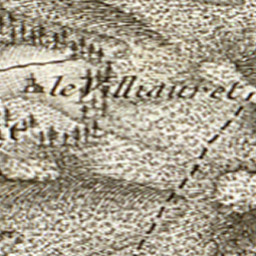 le Villiauret